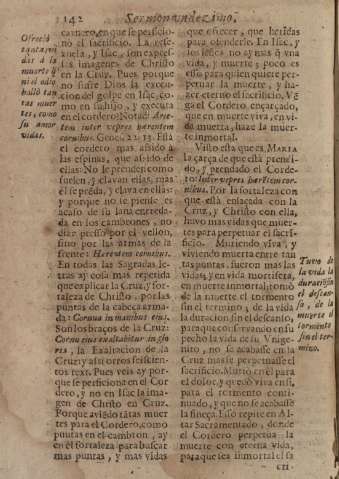 142 Sermon undezimo.
carnero, en que se perficionó
el sacrificio. La
y Isac, son expresas
imagenes de Christo
en la Cruz. Pues porque
no sufre Dios la execucion
del golpe en Isac, como
en su hijo, y executa
en el cordero? Notad: Arietem
inter vepres hærentem
cornibus. Genes. 22. 13. Està
el cordero mas asido à
las espinas, que asido de
ellas: No le prenden como
suelen, y clavan ellas, mas
el se préda, y clava en ellas:
y porque no se piense es
acaso de su lana entredada
en los cambrones, no
dize preso por el vellon,
sino por las armas de la
frente: Hærentem cornibus.
En todas las Sagradas letras
ay cosa mas repetida
que explicar la Cruz, y fortaleza
de Christo, por las
puntas de la cabeça armada:
Cornua in manibus eius.
Son los braços de la Cruz:
Cornu eius exaltabitur in gloria,
la Exaltacion de la
Cruz; y asi otros seiscientos
text. Pues veis ay porque
se perficiona en el Cordero,
y no en Isac la imagen
de Christo en Cruz.
Porque aviédo tãtas muertes
para el Cordero, como
puntas en el cambron, ay
en él fortaleza para buscar
mas puntas, y mas vidas
Ofreciò
tantas vidas
à la
muerte q̃
ni el odio
hallò tantas
muertes,
como
su amor
vidas.
que ofrecer, que heridas
para ofenderse. En Isac, y
los suyos no ay mas q̃ vna
vida, y muerte, y poco es
esso para quien quiere perpetuar
la muerte, y hazer
eterno el sacrificio. Vẽga
el Cordero, ençarçado,
que en muerte viva, en vida
muerta, haze la muerte
inmortal.
Visto està que es MARIA
la çarça de que està prendido,
y prendado el Cordero:
Inter vepres hærentem cornibus.
Por la fortaleza con
que està enlaçada con la
Cruz, y Christo con ella,
huvo mas vidas que muertes
para perpetuar el sacrificio.
Muriendo viva, y
viviendo muerta entre tantas
puntas, fueron mas las
vidas, y en vida mortifera,
en muerte inmortal; tomò
de la muerte el tormento
sin el termino, de la vida
la duracion sin el descanso,
para que conservando en su
pecho la vida de su Vnigenito,
no se acabasse en la
Cruz mas se perpetuasse el
sacrificio. Muriò en él para
el dolor, y quedò viva en si,
para el tormento continuado,
y que no se acabasse
la fineça. Esso repite en Altar
Sacramentado, donde
el Cordero perpetua la
muerte con eterna vida,
Tuvo de
la vida la
duracio sin
el descanso,
de la
muerte el
tormento
sin el termino.